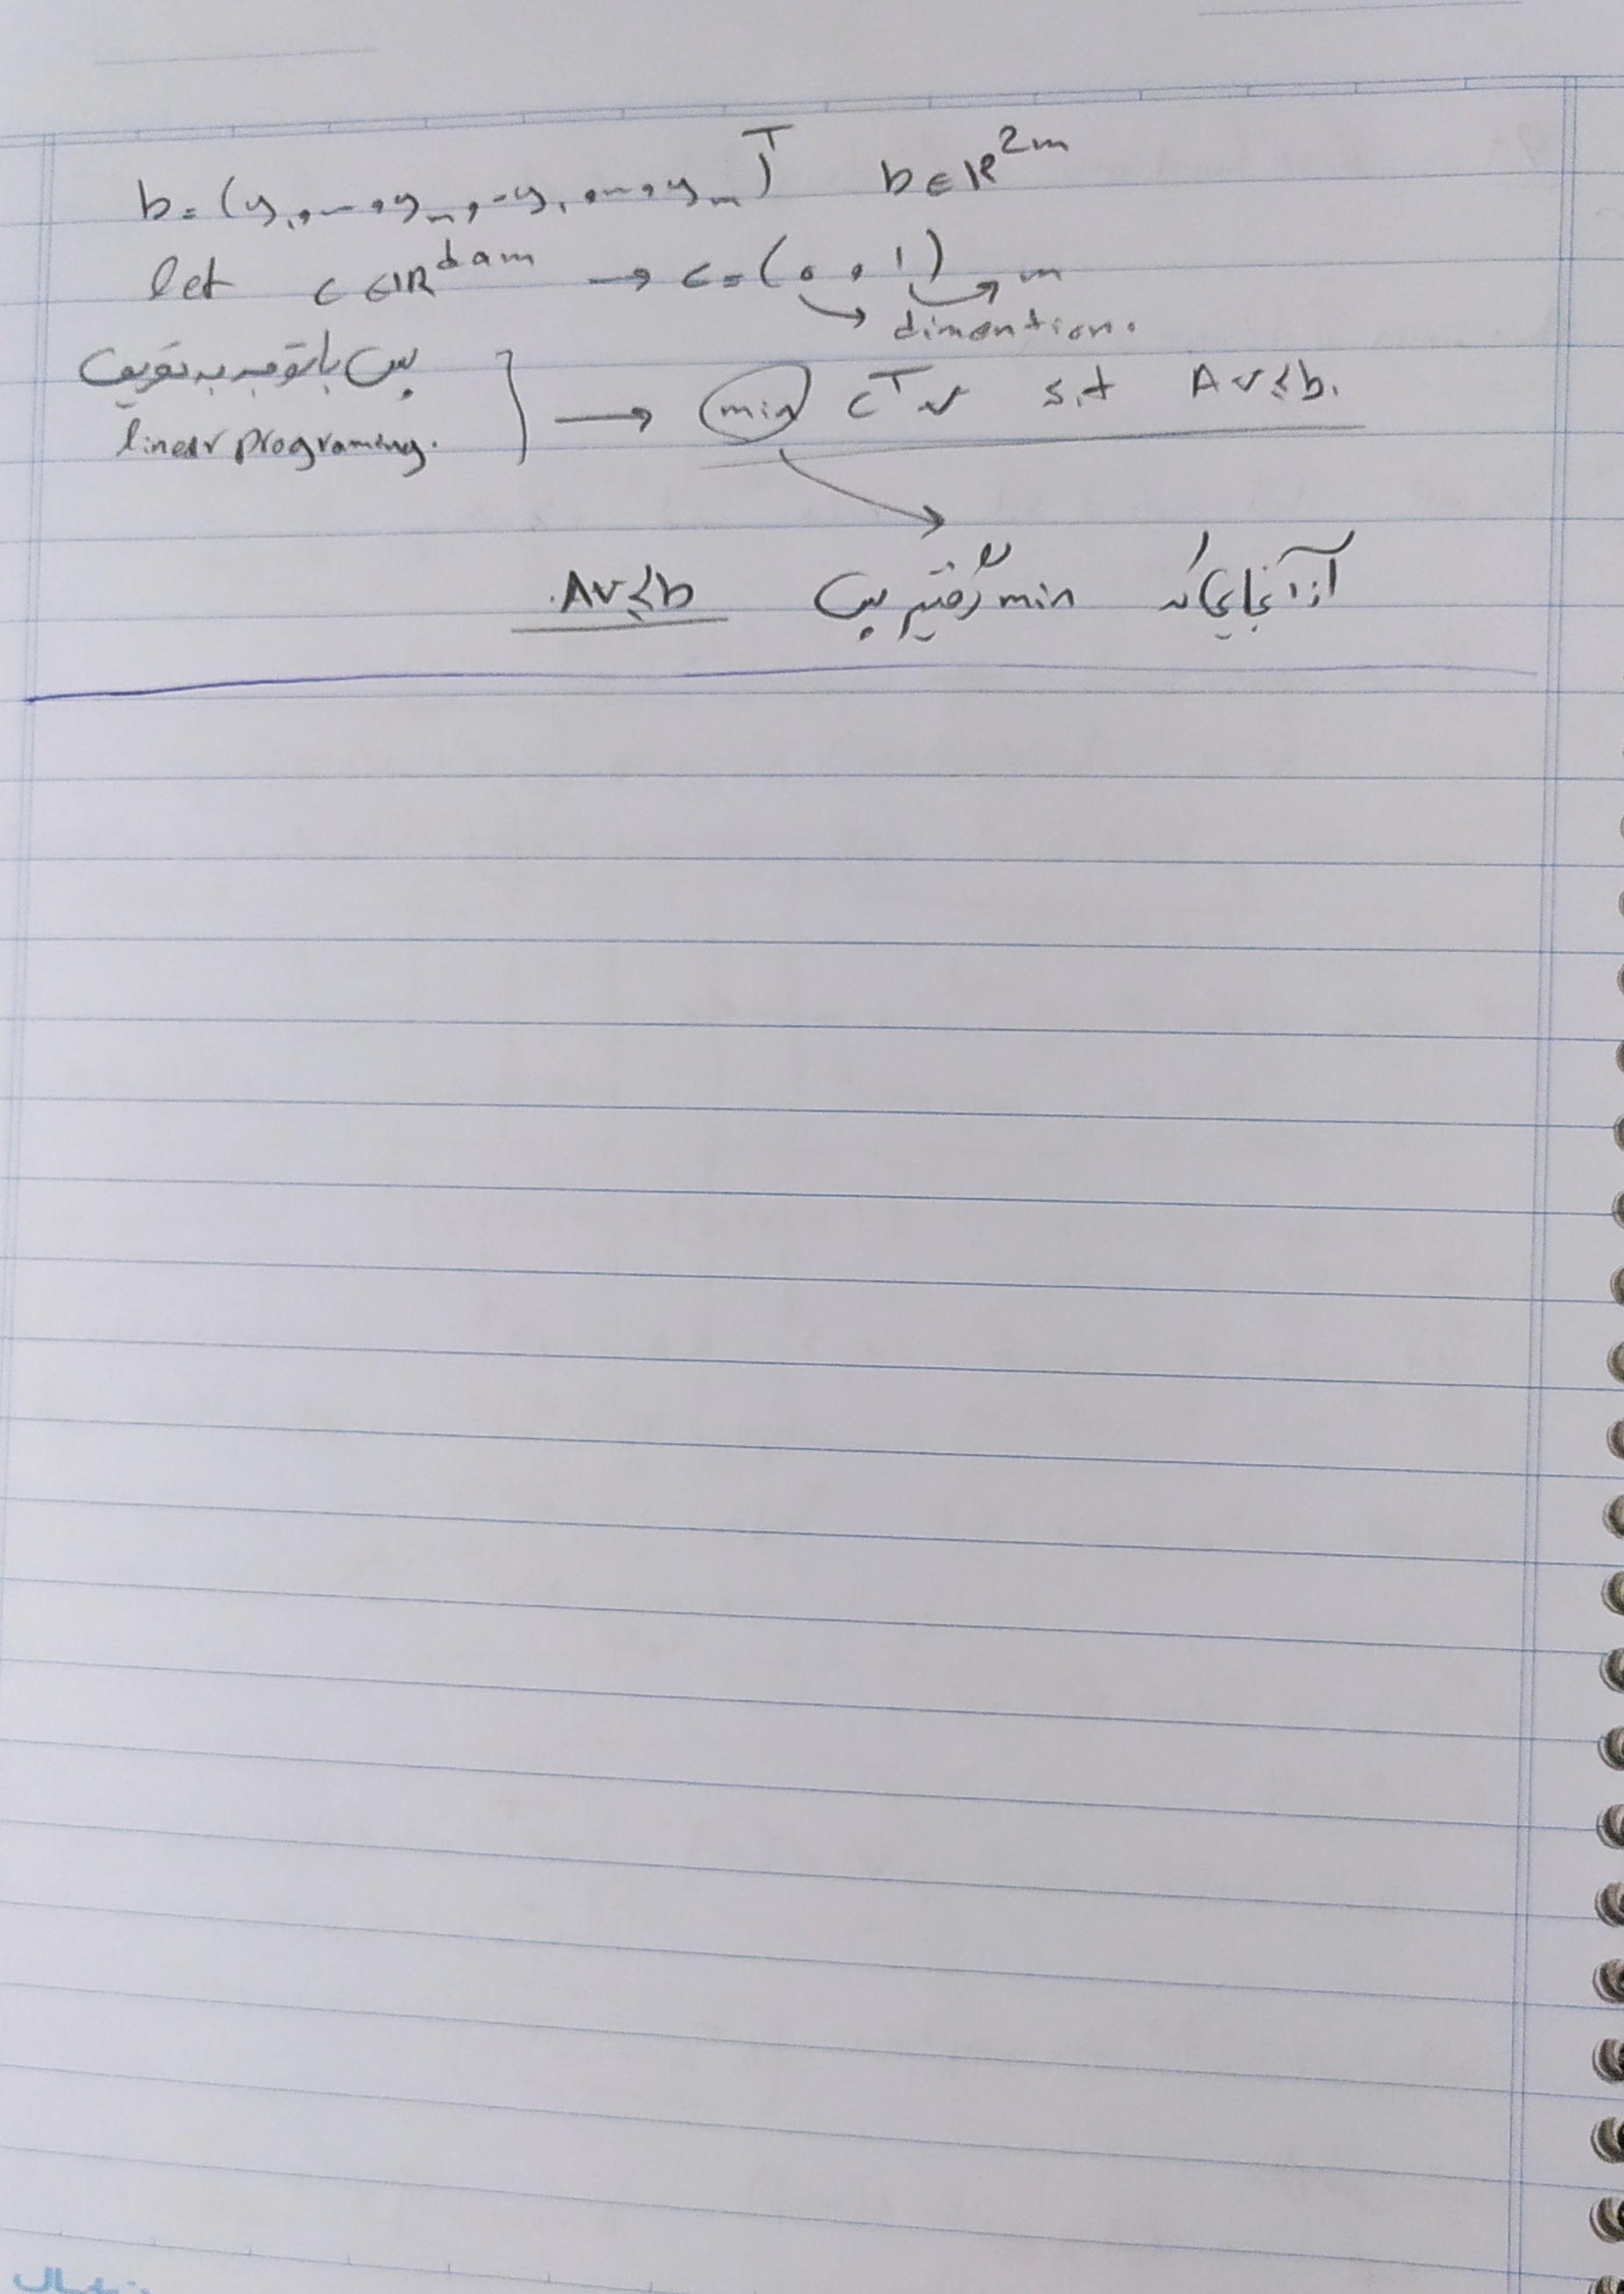 b = (y₁, ..., yₘ, -y₁, ..., yₘ)ᵀ b ∈ ℝ²ᵐ
let c ∈ ℝ → c = (0, 1) m
dimention.
پس با توجه به تعریف
linear programing. → min cᵀv s.t Av ≤ b.
از آنجایی که min گرفتیم پس Av ≤ b.